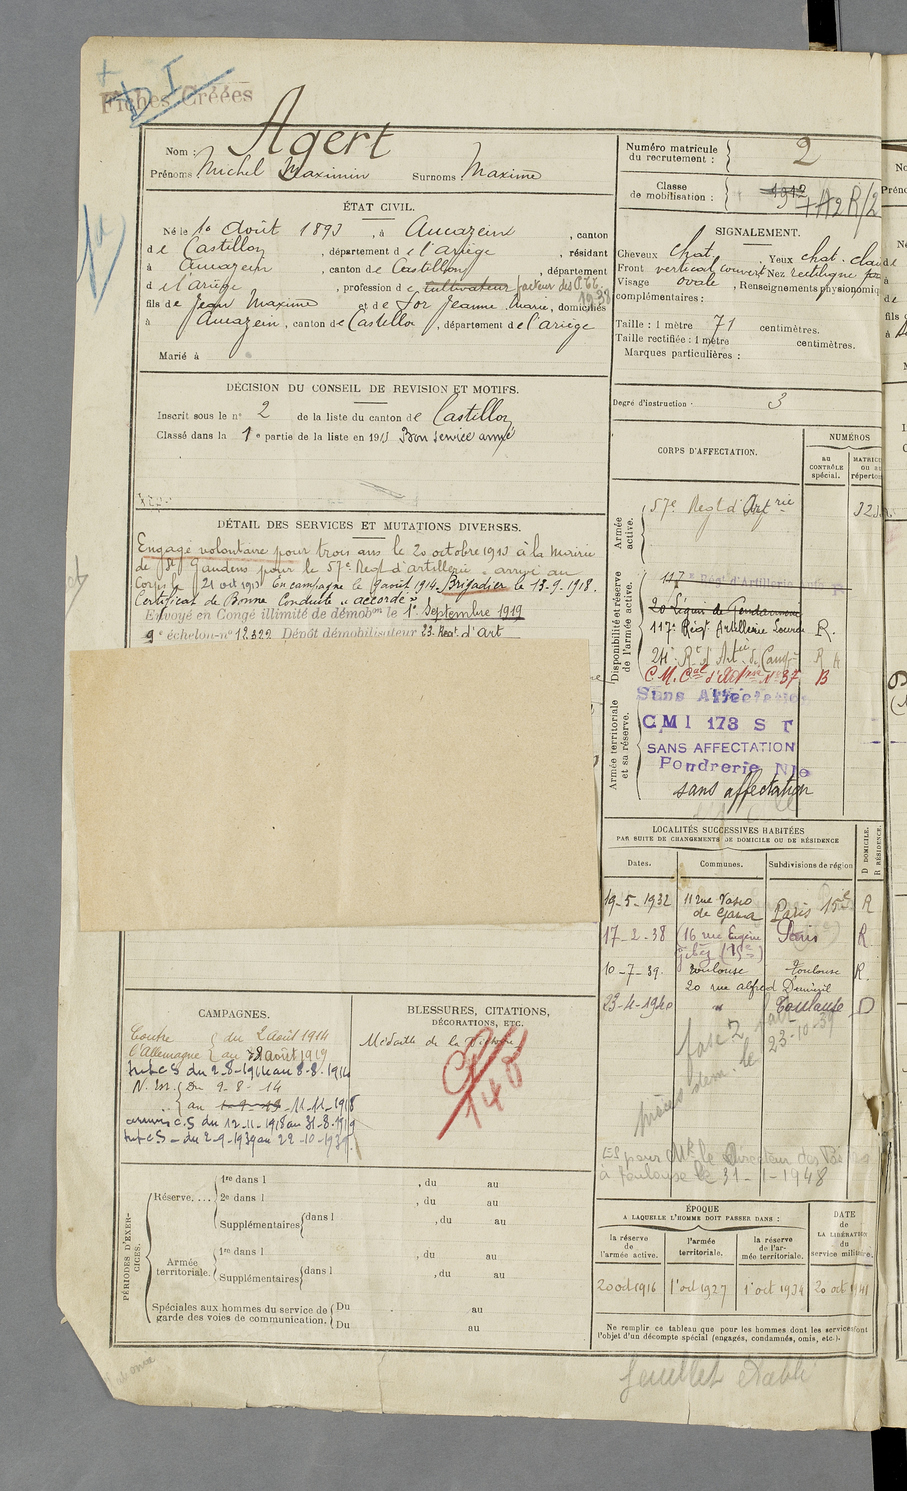 Fiches Créées
Agert
Nom :
Prénoms Michel Maximin Surnoms Maxime
ÉTAT CIVIL.
Né le 10 août 1893, à Aucazein, canton
de Castillon, département de l'ariège, résidant
à Aucazein, canton de Castillon, département
de l'ariège, profession de cultivateur facteur des P.T.T. 1938
fils de Jean Maxime et de For Jeanne Marie, domiciliés
à Aucazein, canton de Castillon, département de l'ariège
Marié à
DÉCISION DU CONSEIL DE REVISION ET MOTIFS.
Inscrit sous le n° 2 de la liste du canton de Castillon
Classé dans la 1e partie de la liste en 1913 Bon service armé
DÉTAIL DES SERVICES ET MUTATIONS DIVERSES.
Engagé volontaire pour trois ans le 20 octobre 1913 à la mairie
de St Gaudens pour le 57e Regt d'artillerie. arrivé au
Corps le 21 oct 1913 En campagne le 9 aout 1914. Brigadier le 13-9-1918.
Certificat de Bonne Conduite "accordé"
Envoyé en Congé illimité de démobon le 1er Septembre 1919
9e échelon - n° 12322 Dépôt démobilisateur 23. Regt. d'Art
CAMPAGNES.
Contre l'Allemagne du 2 août 1914
au 31 août 1919
du 2-8-1914 au 8-8-1914
Du 9-8-14
au 11-11-1918
C.S du 12-11-1918 au 31-8-1919
du 2-9-1939 au 22-10-1939
BLESSURES, CITATIONS,
DÉCORATIONS, ETC.
Médaille de la Victoire
PÉRIODES D'EXERCICES.
Réserve....
1re dans l , du au
2e dans l , du au
Supplémentaires dans l , du au
Armée territoriale.
1re dans l , du au
Supplémentaires dans l , du au
Spéciales aux hommes du service de garde des voies de communication.
Du au
Du au
Numéro matricule du recrutement : 2
Classe de mobilisation : 1912
SIGNALEMENT.
Cheveux chat. Yeux chat. clair
Front vertical couvert Nez rectiligne
Visage ovale, Renseignements physionomiq
complémentaires :
Taille : 1 mètre 71 centimètres.
Taille rectifiée : 1 mètre centimètres.
Marques particulières :
Degré d'instruction : 3
CORPS D'AFFECTATION.
NUMÉROS
au CONTRÔLE spécial.
MATRICULE
Armée active.
57e Regt d'Artrie
Disponibilité et réserve de l'armée active.
117e Regt d'Artillerie
20 Légion de Gendarmerie
117e Régt Artillerie Lourde R.
24e Rt d'Artie de Campne R
B
Armée territoriale et sa réserve.
Sans Affectation
CMI 173 S T
SANS AFFECTATION
Poudrerie Nle
sans affectation
LOCALITÉS SUCCESSIVES HABITÉES
PAR SUITE DE CHANGEMENTS DE DOMICILE OU DE RÉSIDENCE
Dates. Communes. Subdivisions de région
D DOMICILE. R RÉSIDENCE.
19-5-1932 11 rue Vasco de Gama Paris 15e R
17-2-38 16 rue Eugène Gibez (15e) Paris R
10-7-39. Toulouse Toulouse R.
20 rue alfred Duméril
23-4-1940 " Toulouse D
23-10-39
à Toulouse le 31-1-1948
ÉPOQUE
A LAQUELLE L'HOMME DOIT PASSER DANS :
la réserve de l'armée active.
l'armée territoriale.
la réserve de l'armée territoriale.
DATE de LA LIBÉRATION du service militaire.
20 oct 1916 1er oct 1927 1er oct 1934 20 oct 1941
Ne remplir ce tableau que pour les hommes dont les services font
l'objet d'un décompte spécial (engagés, condamnés, omis, etc.).
feuillet établi